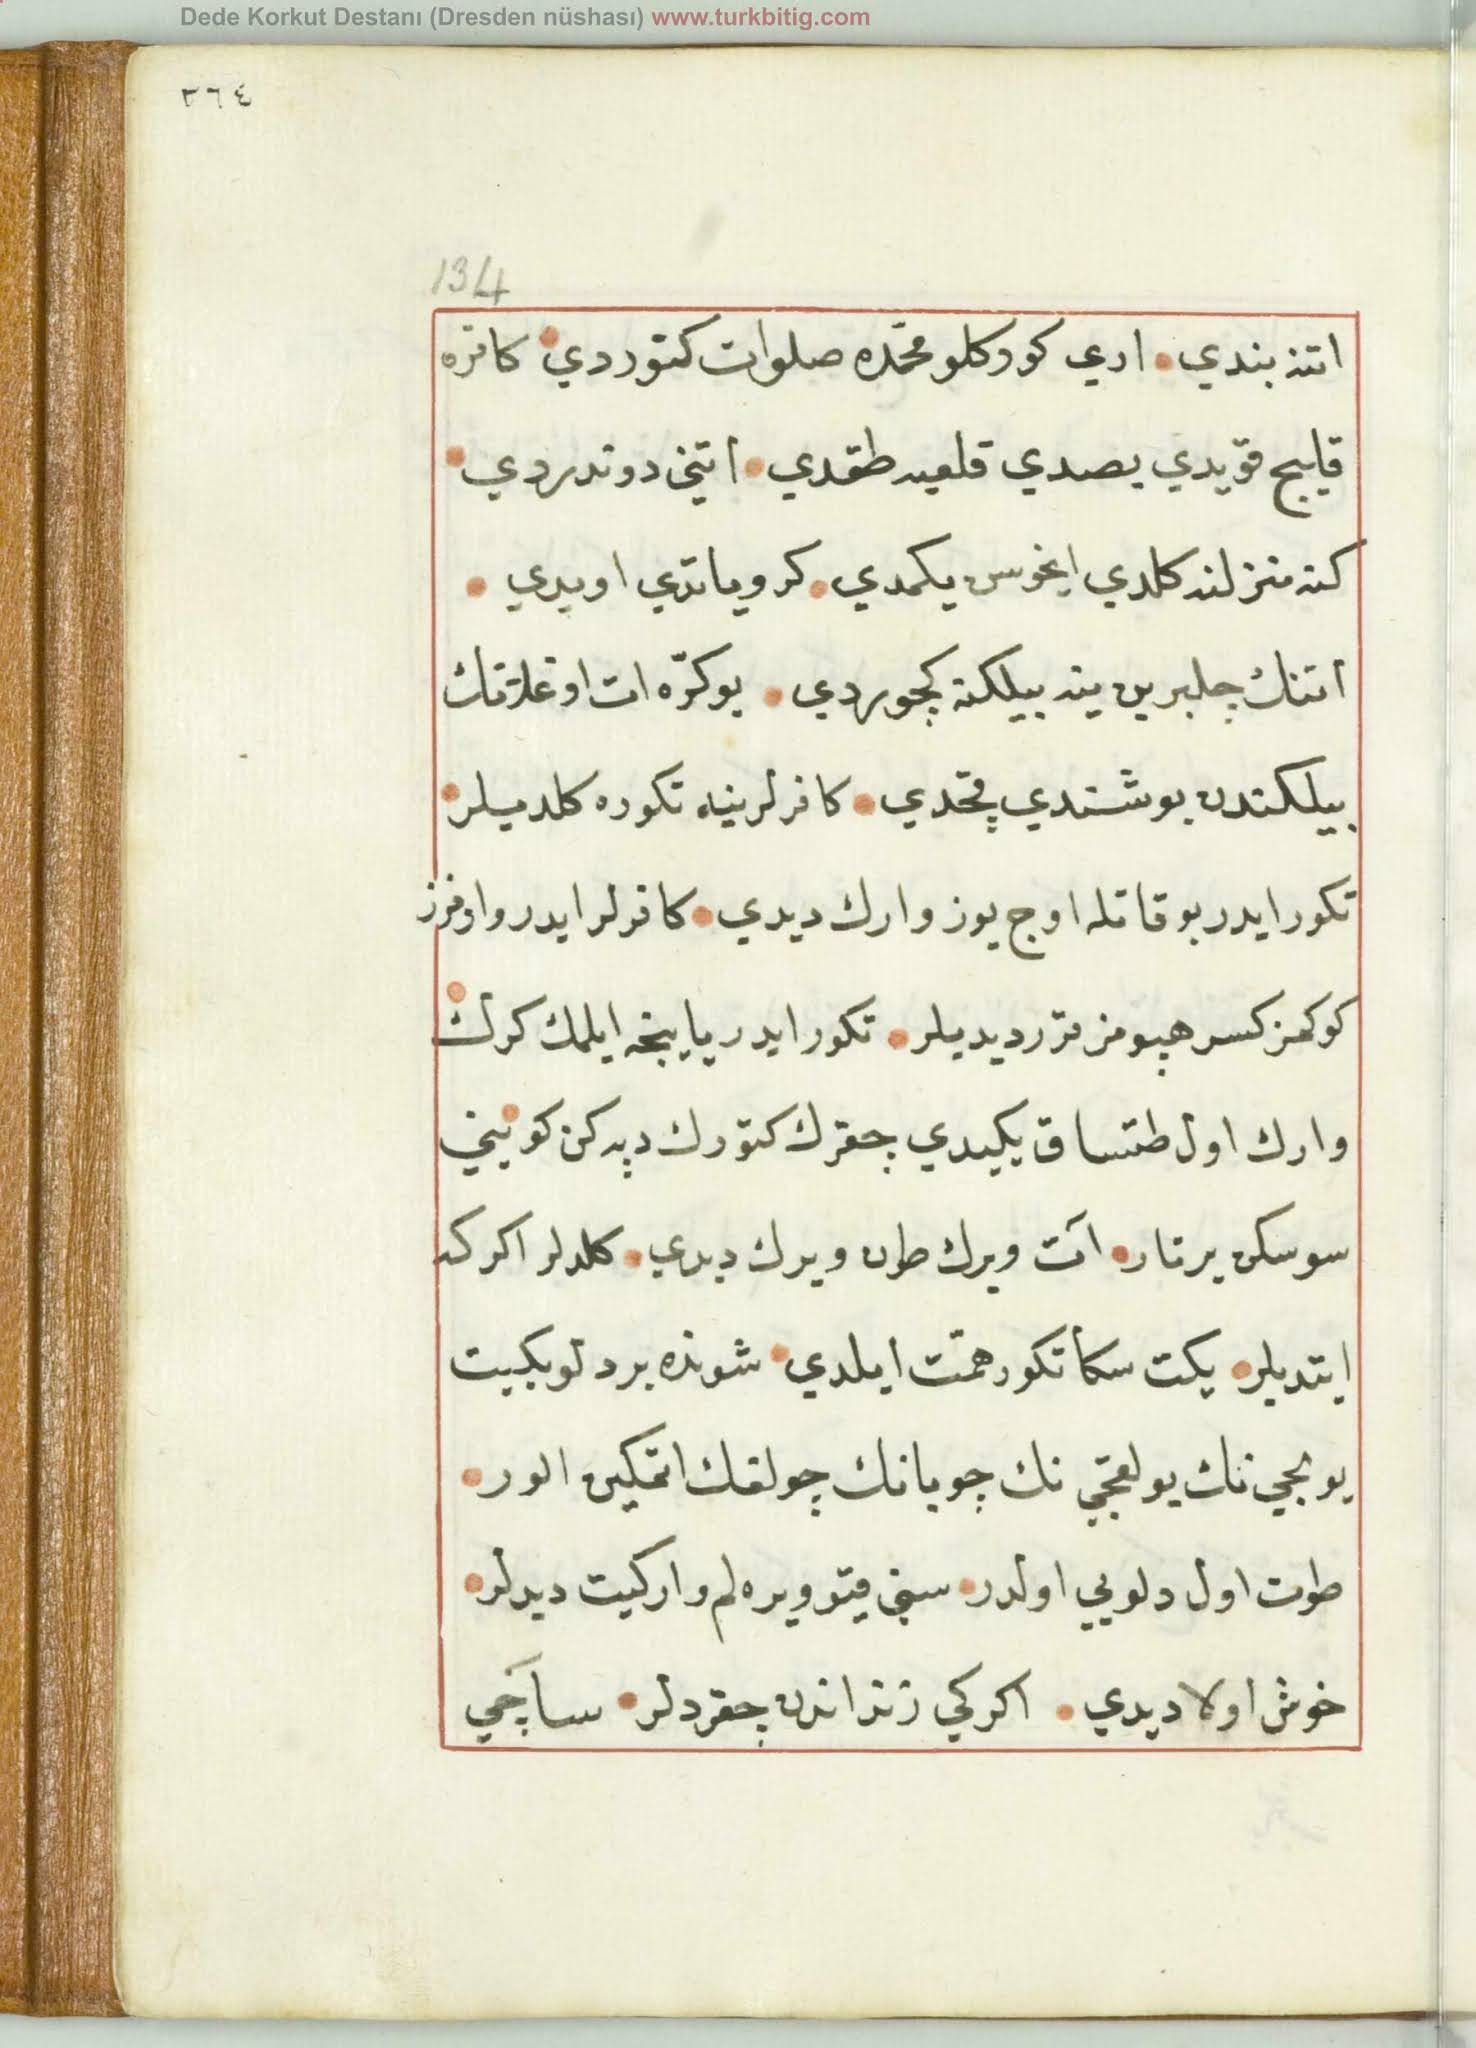 Dede Korkut Destanı (Dresden nüshası) www.turkbitig.com
٢٦٤
134
اتنه بندي اري كوركلو محمّده صلوات كتوردي كافره
قليج قويدي بصدي قلعيه طقدي اتني دوندردي
كنه منزلنه كلدي ايغوسن يكمدي كرو ياتدي اويدي
اتنك جلبرين ينه بيلكنه كچوردي بو كرّه ات اوغلانك
بيلكندن بوشندي قچدي كافرلر ينه تكوره كلديلر
تكور ايدر بو قاتله اوچ يوز وارك ديدي كافرلر ايدر وارورز
كوكمز كسر هپومز قرر ديديلر تكور ايدر يا نيجه ايلمك كرك
وارك اول طتساق يكيدي چقرك كتورك دپه كن كويني
سوسكن يرتار آت ويرك طون ويرك ديدي كلدلر اكركه
ايتديلر يكت سكا تكور همّت ايلدي شونده بر دلو يكيت
يولجي نك يولقجي نك چوبانك چولقك اتمكين الور
طوت اول دلويي اولدر سني قيو ويره لم وار كيت ديدلر
خوش اولا ديدي اكركي زنداندن چقردلر ساچي